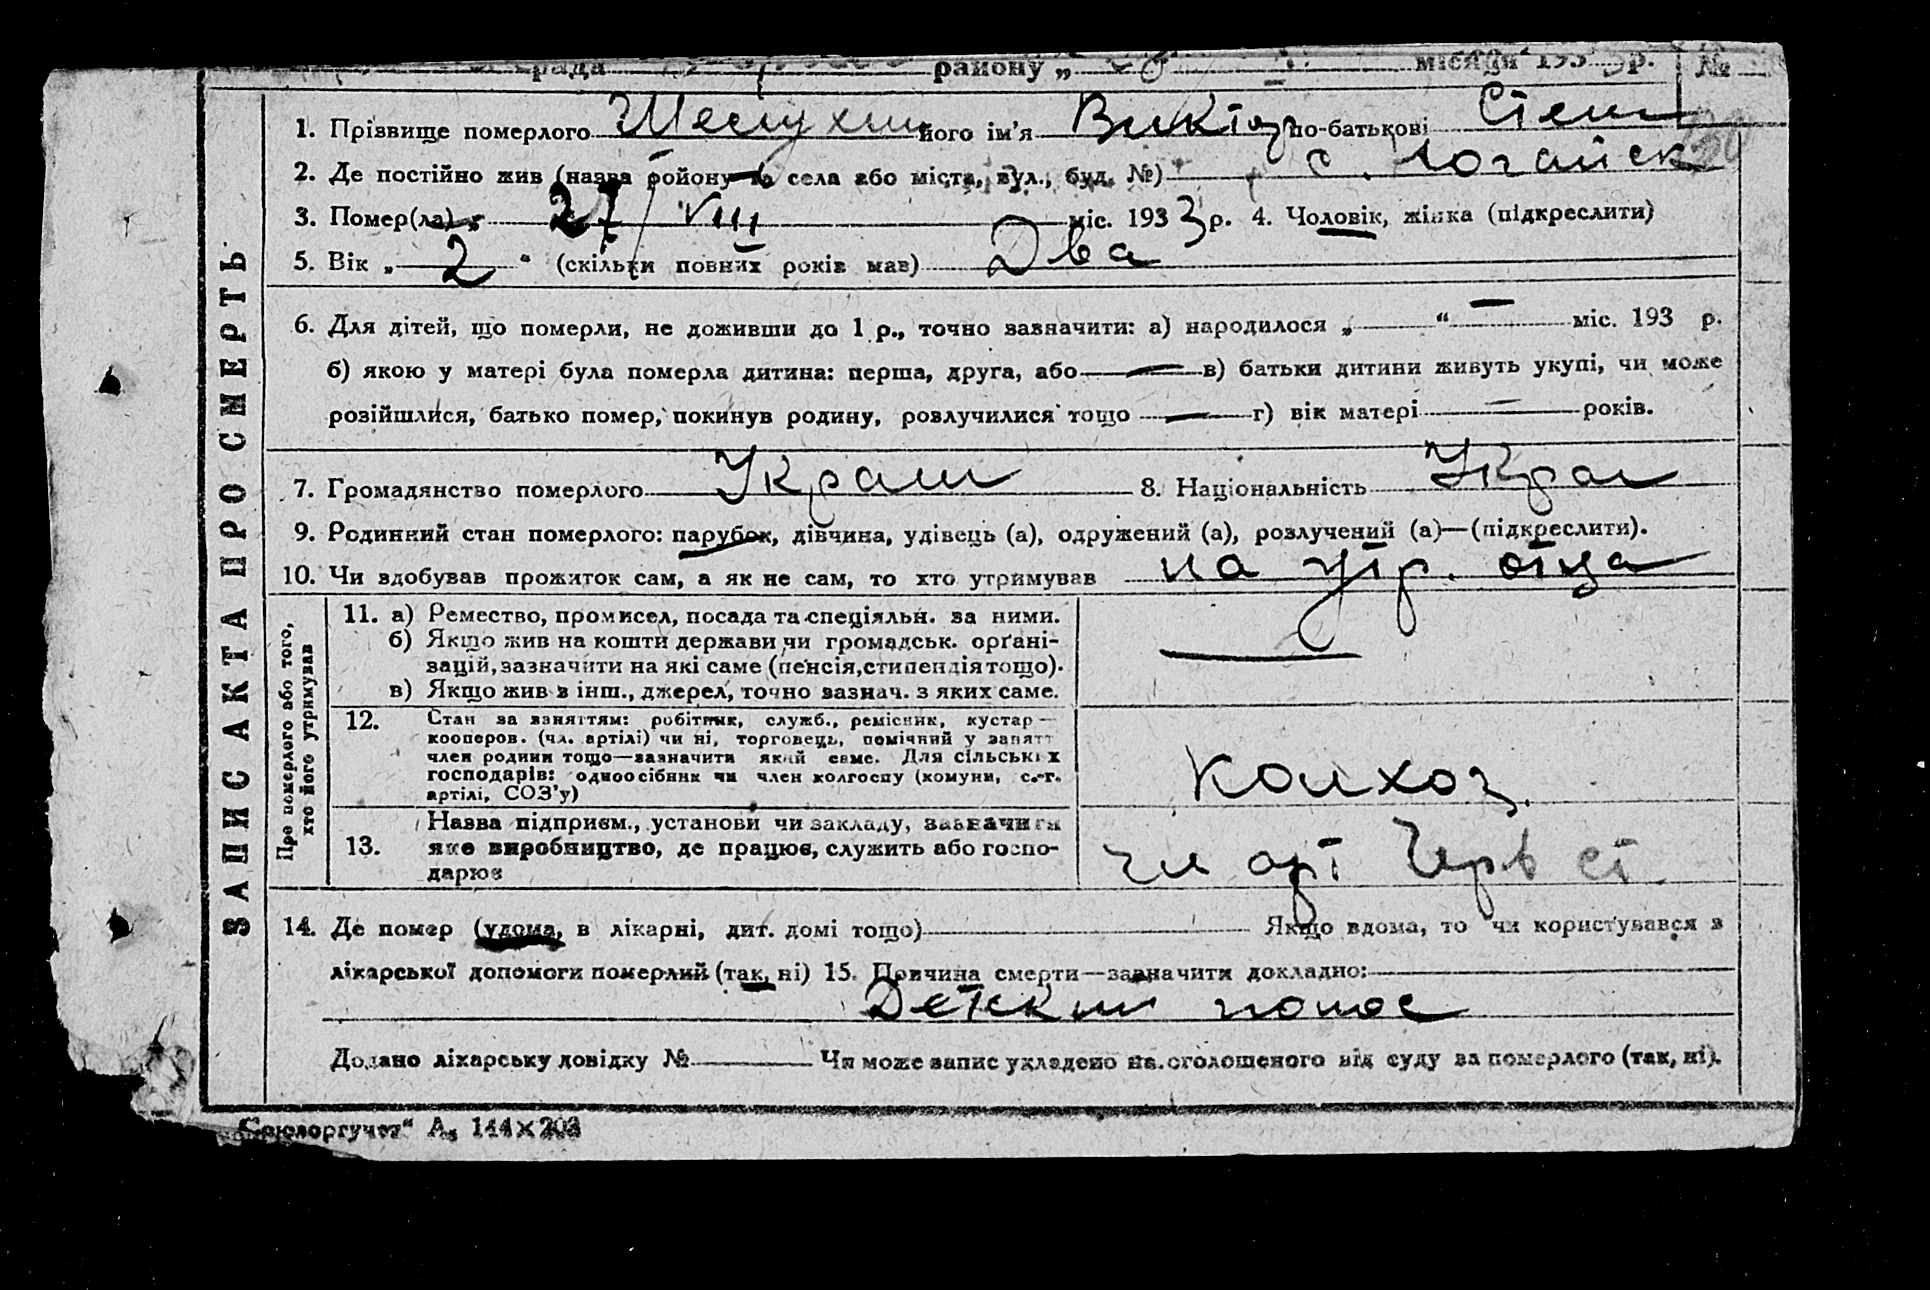 рада району „ місяця 193 р. №
1. Прізвище померлого його ім'я Виктор по-батькові Степ
2. Де постійно жив (назва району та села або міста, вул., буд. №) с.
3. Помер(ла) „ 27/VIII міс. 1933 р. 4. Чоловік, жінка (підкреслити)
5. Вік „ 2 “ (скільки повних років мав) Два
6. Для дітей, що померли, не доживши до 1 р., точно зазначити: а) народилося „ — “ — міс. 193 р.
б) якою у матері була померла дитина: перша, друга, або — в) батьки дитини живуть укупі, чи може
розійшлися, батько помер, покинув родину, розлучилися тощо — г) вік матері — років.
7. Громадянство померлого Украин 8. Національність Украи
9. Родинний стан померлого: парубок, дівчина, удівець (а), одружений (а), розлучений (а)—(підкреслити).
10. Чи здобував прожиток сам, а як не сам, то хто утримував на утр. отца
ЗАПИС АКТА ПРО СМЕРТЬ
Про померлого або того,
хто його утримував
11. а) Ремество, промисел, посада та спеціяльн. за ними.
б) Якщо жив на кошти держави чи громадськ. орґані-
зацій, зазначити на які саме (пенсія, стипендія тощо).
в) Якщо жив з інш., джерел, точно зазнач. з яких саме.
12. Стан за заняттям: робітник, служб., ремісник, кустар—
кооперов. (чл. артілі) чи ні, торговець, помічний у занятт
член родини тощо—зазначити який саме. Для сільських
господарів: одноосібник чи член колгоспу (комуни, с.-г.
артілі, СОЗ'у)
Колхоз.
13. Назва підприєм., установи чи закладу, зазначити
яке виробництво, де працює, служить або госпо-
дарює
чл арт Черв ст
14. Де помер (удома, в лікарні, дит. домі тощо) Якщо вдома, то чи користувався з
лікарської допомоги померлий (так, ні) 15. Причина смерти—зазначити докладно:
Детский понос
Додано лікарську довідку № Чи може запис укладено на оголошеного від суду за померлого (так, ні).
„Союзоргучет“ А₅ 144×203